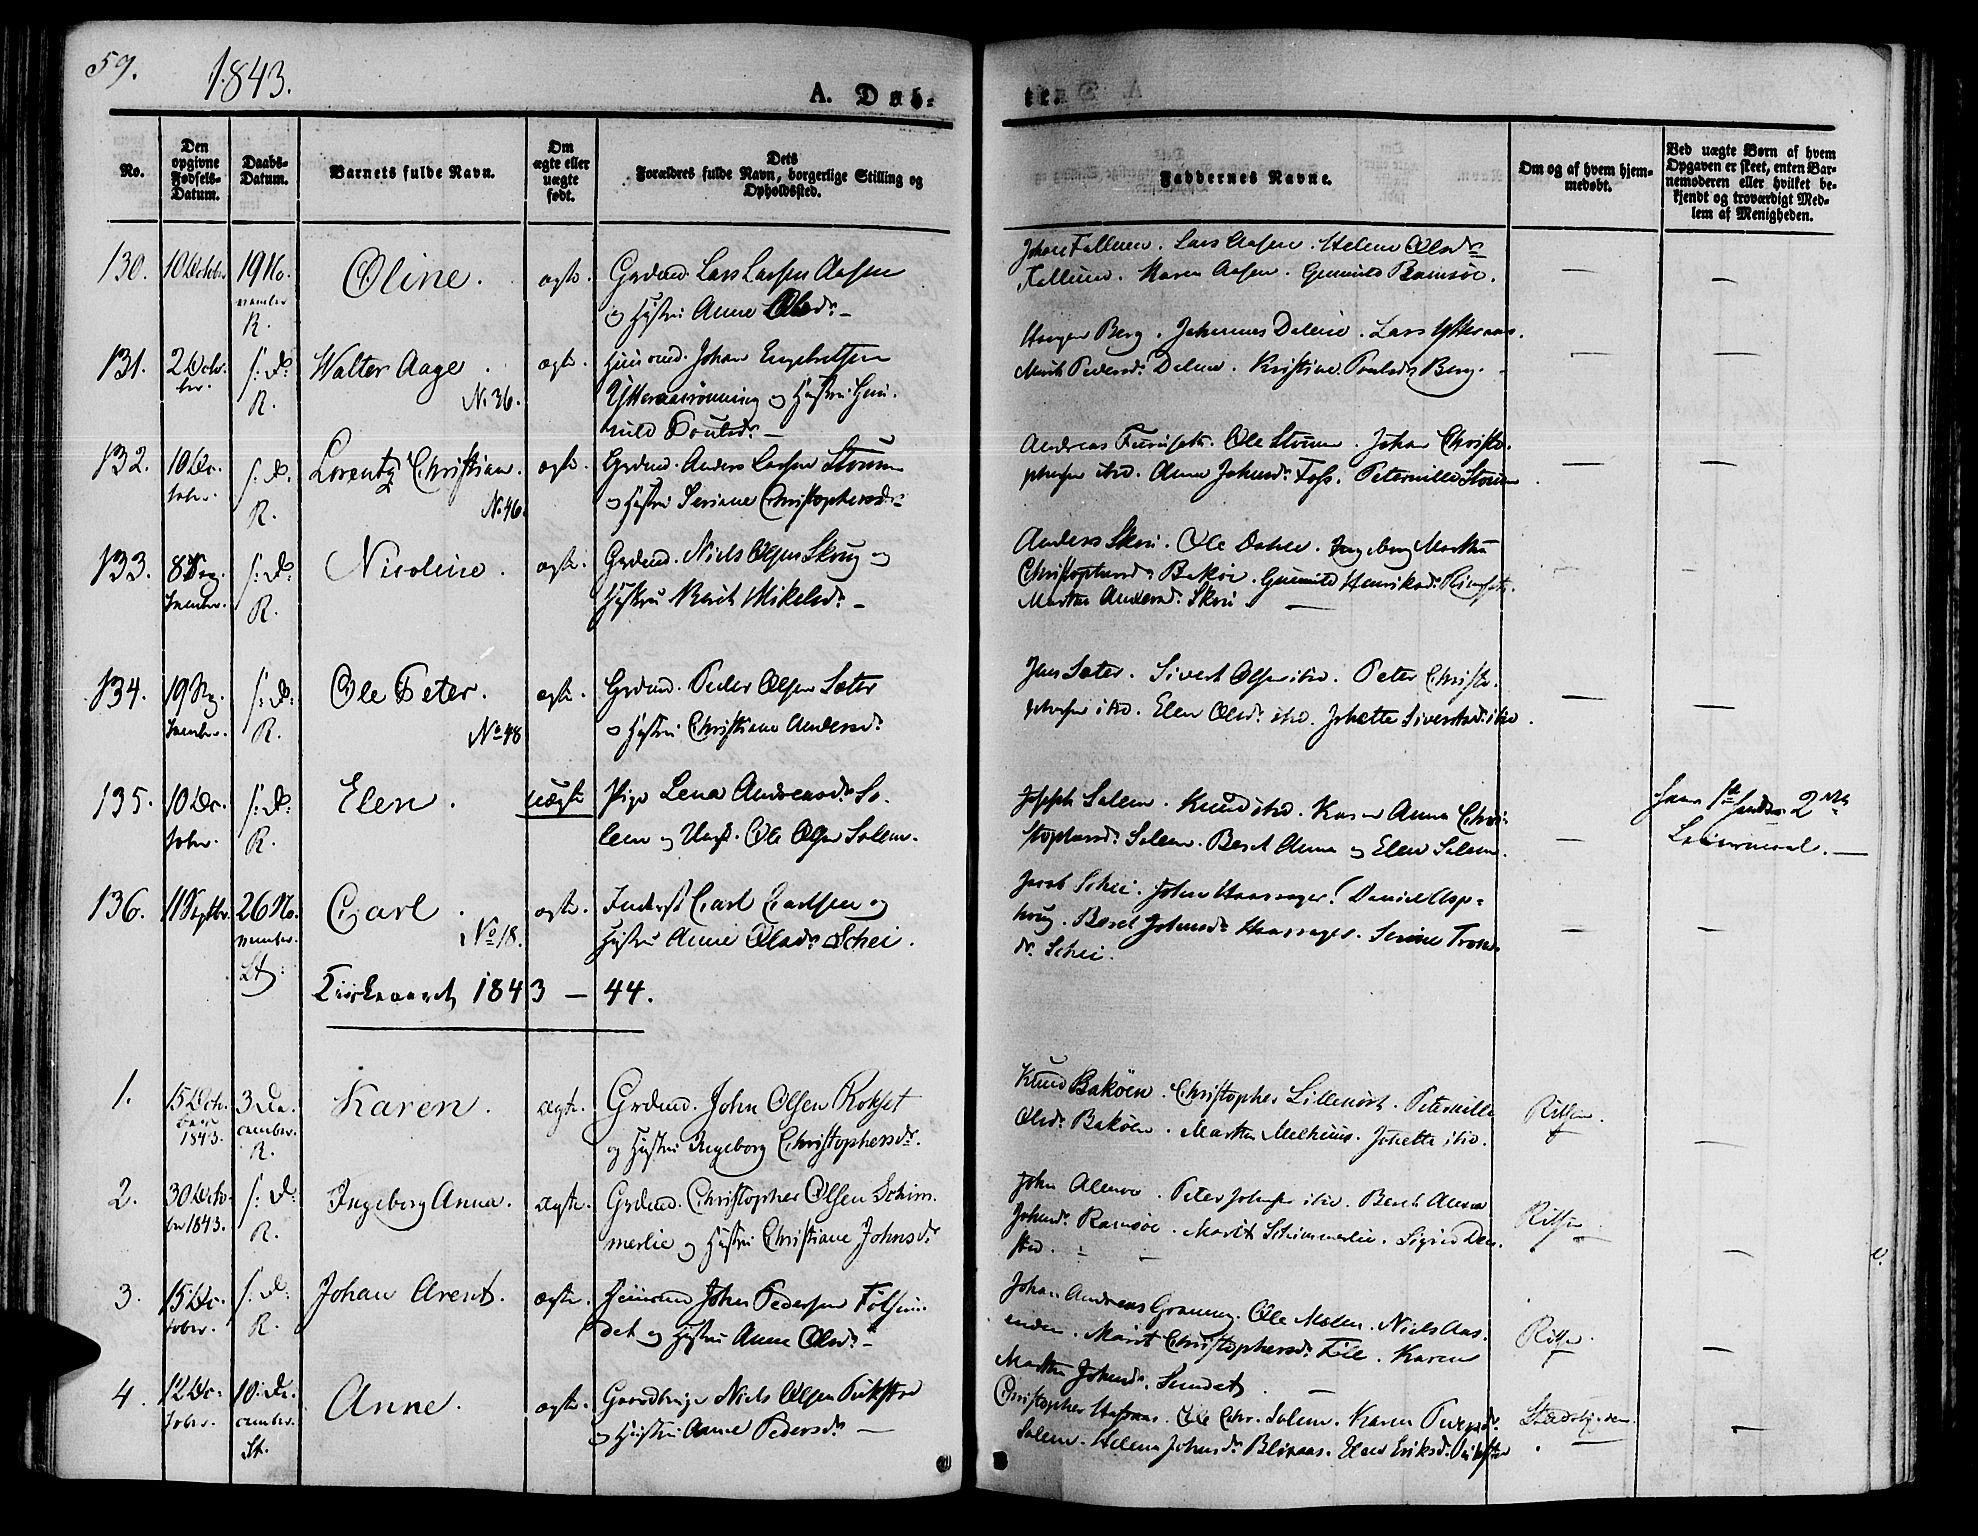 59.
1843.
A. Døb-
te.
No.
Den opgivne Fødsels-Datum.
Daabs-Datum.
Barnets fulde Navn.
Om ægte eller uægte født.
Dets Forældres fulde Navn, borgerlige Stilling og Opholdssted.
Faddernes Navne.
Om og af hvem hjemmedøbt.
Ved uægte Børn af hvem Opgaven er skeet, enten Barnemoderen eller hvilket bekjendt og troværdigt Medlem af Menigheden.
130. 10 Octobr 19 November R. Oline. ægte. Grdmd. Lars Larsen Aasen
og Hustru Anne Olsdr. —
Lars Aasen. Helene Olsdr
Maren Aasen. Gunnild Ramsøe. — —
131. 2 Octobr. s: D: R. Walter Aage. ægte. Huusmd. Johan Engebretsen
No. 36. Ytteraasrønning og Hustru Gunnild Poulsdr. —
Berg. Johannes Dalene. Lars Ytteraas.
Marit Pedersdr. Dalen. Kristine Poulsdr Berg. — —
132. 10 October. s: D: R. Lorentz Christian. ægte. Grdmd. Anders Larsen Strøm
No. 46. og Hustru Seriane Christophersdr. —
Andreas Furuset. Ole Strøm. Johan Christophersen ibid. Anne Johnsdr. Foss. Peternille Strøm. — —
133. 8 September. s: D: R. Nicoline. ægte. Grdmd. Niels Olsen Skrug og
Hustru Berit Mikelsdr. —
Anders Skrui. Ole Dahle. Ingeborg Martha
Christophersdr. Bakøe. Gunnild Henriksdr.
Martha Andersdr. Skrui — — —
134. 19 September. s: D: R. Ole Peter. ægte. Grdmd. Peder Olsen Sæter
No 48 og Hustru Christiane Andersdr.
Jens Sæter. Sivert Olsen ibid. Peter Christophersen ibid. Elen Olsdr. ibid. Johette Sivertsdr. ibid. — —
135. 10 October. s: D: R. Elen. uægte Pige Lena Andreasdr. Solem og Ungk. Ole Olsen Solem.
Joseph Solem. Knud ibid. Karen Anna Christophersdr. Solem. Beret Anna og Elen Solem. —
hans 1ste hendes 2det
Leiermaal. —
136. 11 Septbr. 26 November. St: Carl. ægte. Inderst Carl Carlsen og
No 18. Hustru Anne Olsdr. Schei.
Jacob Schei. Johan Haarsager. Daniel Asphoug. Beret Johnsdr. Haarsager. Serine Tronsdr. Schei. — —
Kirkeaaret 1843 — 44.
1. 15 October 1843. 3 December. R. Karen. ægte. Grdmd. John Olsen Rokset
og Hustru Ingeborg Christophersdr.
Knud Bakøen. Christopher Peternille
Olsdr. Bakøen. Martha Melhuus. Johette ibid. —
2. 30 October 1843. s: D: R. Ingeborg Anna. ægte. Grdmd. Christopher Olsen Schimmerlie og Hustru Christiane Johnsdr.
John Peter Johnsen ibid. Berit Anna
Johnsdr. Ramsøe. Marit Schimmerlie. Sigrid —
3. 15 October. s: D: R. Johan Arent. ægte. Huusmd John Pedersen
og Hustru Anne Olsdr. —
Johan Andreas Ole Moen. Niels
Marit Christophersdr. Karen
Martha Johnsdr. Sundet. — —
4. 12 October. 10. December. St. Anne. ægte. Gaardbruger Niels Olsen
og Hustru Anne Pedersdr. —
Christopher Ole Chr. Solem. Karen
Solem. Helena Johnsdr. Elen Eriksdr. —